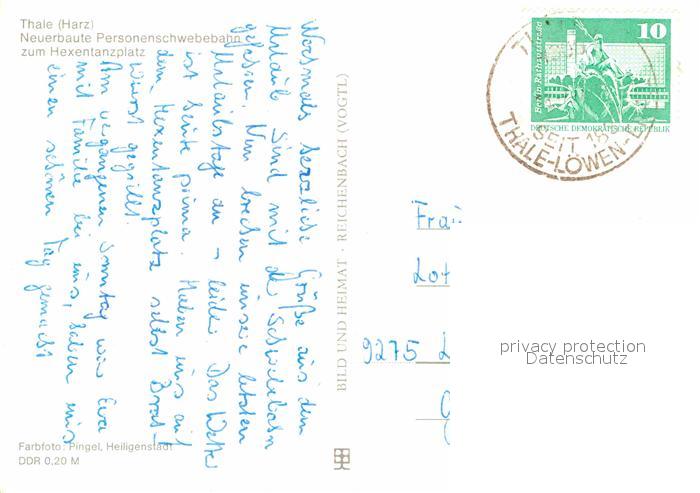 Thale (Harz)
Neuerbaute Personenschwebebahn
zum Hexentanzplatz
Nochmals herzliche Grüße aus dem
Urlaub. Sind mit der Schwebebahn
gefahren. Nun brechen unsere letzten
Urlaubstage an – leider. Das Wetter
ist heute prima. Haben uns auf
dem Hexentanzplatz selbst Brat-
wurst gegrillt.
Am vergangenen Sonntag war Eva
mit Familie bei uns, haben uns
einen schönen Tag gemacht
Farbfoto: Pingel, Heiligenstadt
DDR 0,20 M
BILD UND HEIMAT · REICHENBACH (VOGTL)
10
Berlin-Rathausstraße
DEUTSCHE DEMOKRATISCHE REPUBLIK
SEIT 18
THALE-LÖWEN-
Fra
Lot
9275 L
privacy protection
Datenschutz